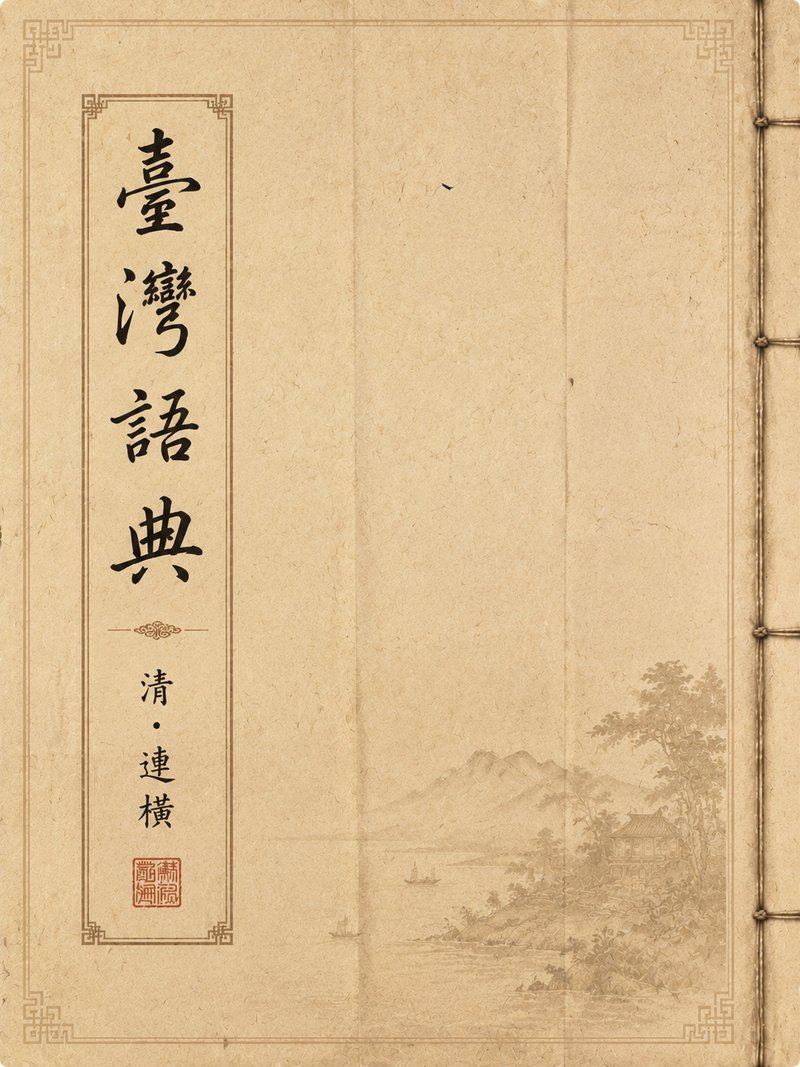 臺灣語典
清·連橫